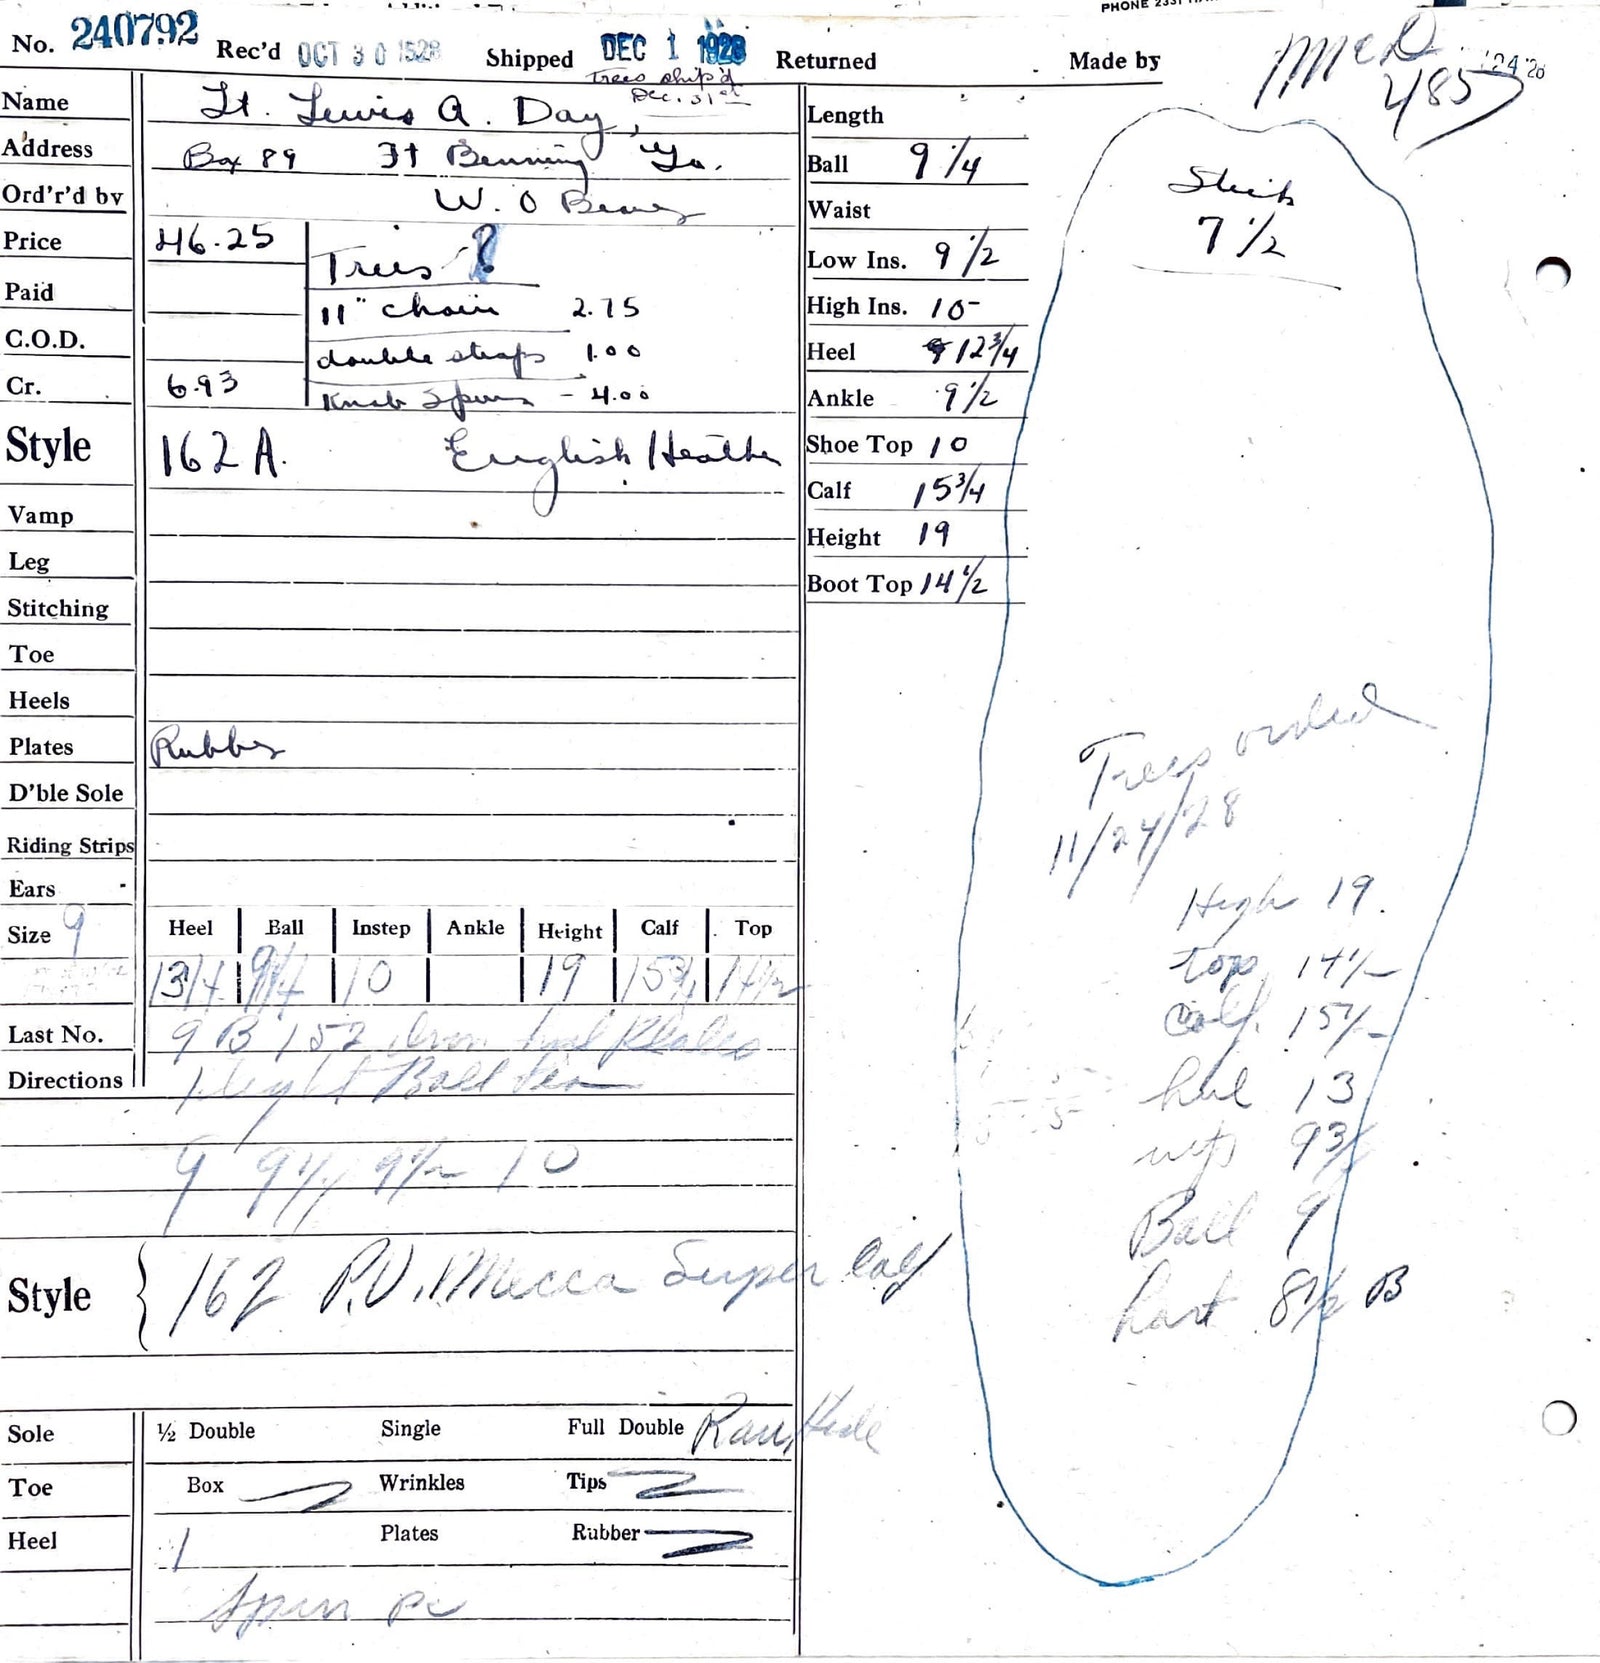 PHONE 2331
No. 240792 Rec'd OCT 30 1928 Shipped DEC 1 1928 Returned Made by McD
Trees ship'd
Dec. 31st
4857
24 '28
Name Lt. Lewis A. Day,
Address Box 89 Ft Benning Ga.
Ord'r'd by W. O
Price 46.25
Trees ?
Paid
11" chain 2.75
C.O.D.
double straps 1.00
Cr. 6.93
Knob Spurs - 4.00
Style 162 A. English Heather
Vamp
Leg
Stitching
Toe
Heels
Plates Rubber
D'ble Sole
Riding Strips
Ears
Size 9
Heel Ball Instep Ankle Height Calf Top
13/4 9 1/4 10 19 15 3/4 14 1/2
Last No. 9 B 152
Directions
9 9 1/4 9 1/2 10
Style 162 P.V. Mecca Super Calf
Sole ½ Double Single Full Double Raw Hide
Toe Box Wrinkles Tips
Heel 1 Plates Rubber
Spur
Length
Ball 9 1/4
Waist
Low Ins. 9 1/2
High Ins. 10-
Heel 12 3/4
Ankle 9 1/2
Shoe Top 10
Calf 15 3/4
Height 19
Boot Top 14 1/2
Stick
7 1/2
Trees orded
11/24/28
High 19.
top 14 1/2
Calf. 15 1/2
heel 13
9 3/4
Ball 9
8 1/2 B